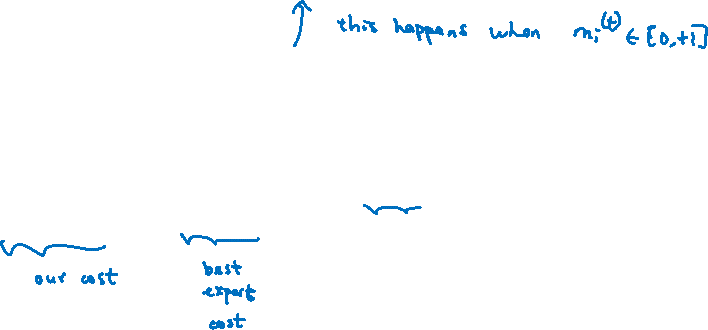 this happens when mᵢ⁽ᵗ⁾ ∈ [0,+1]
our cost
best
expert
cost